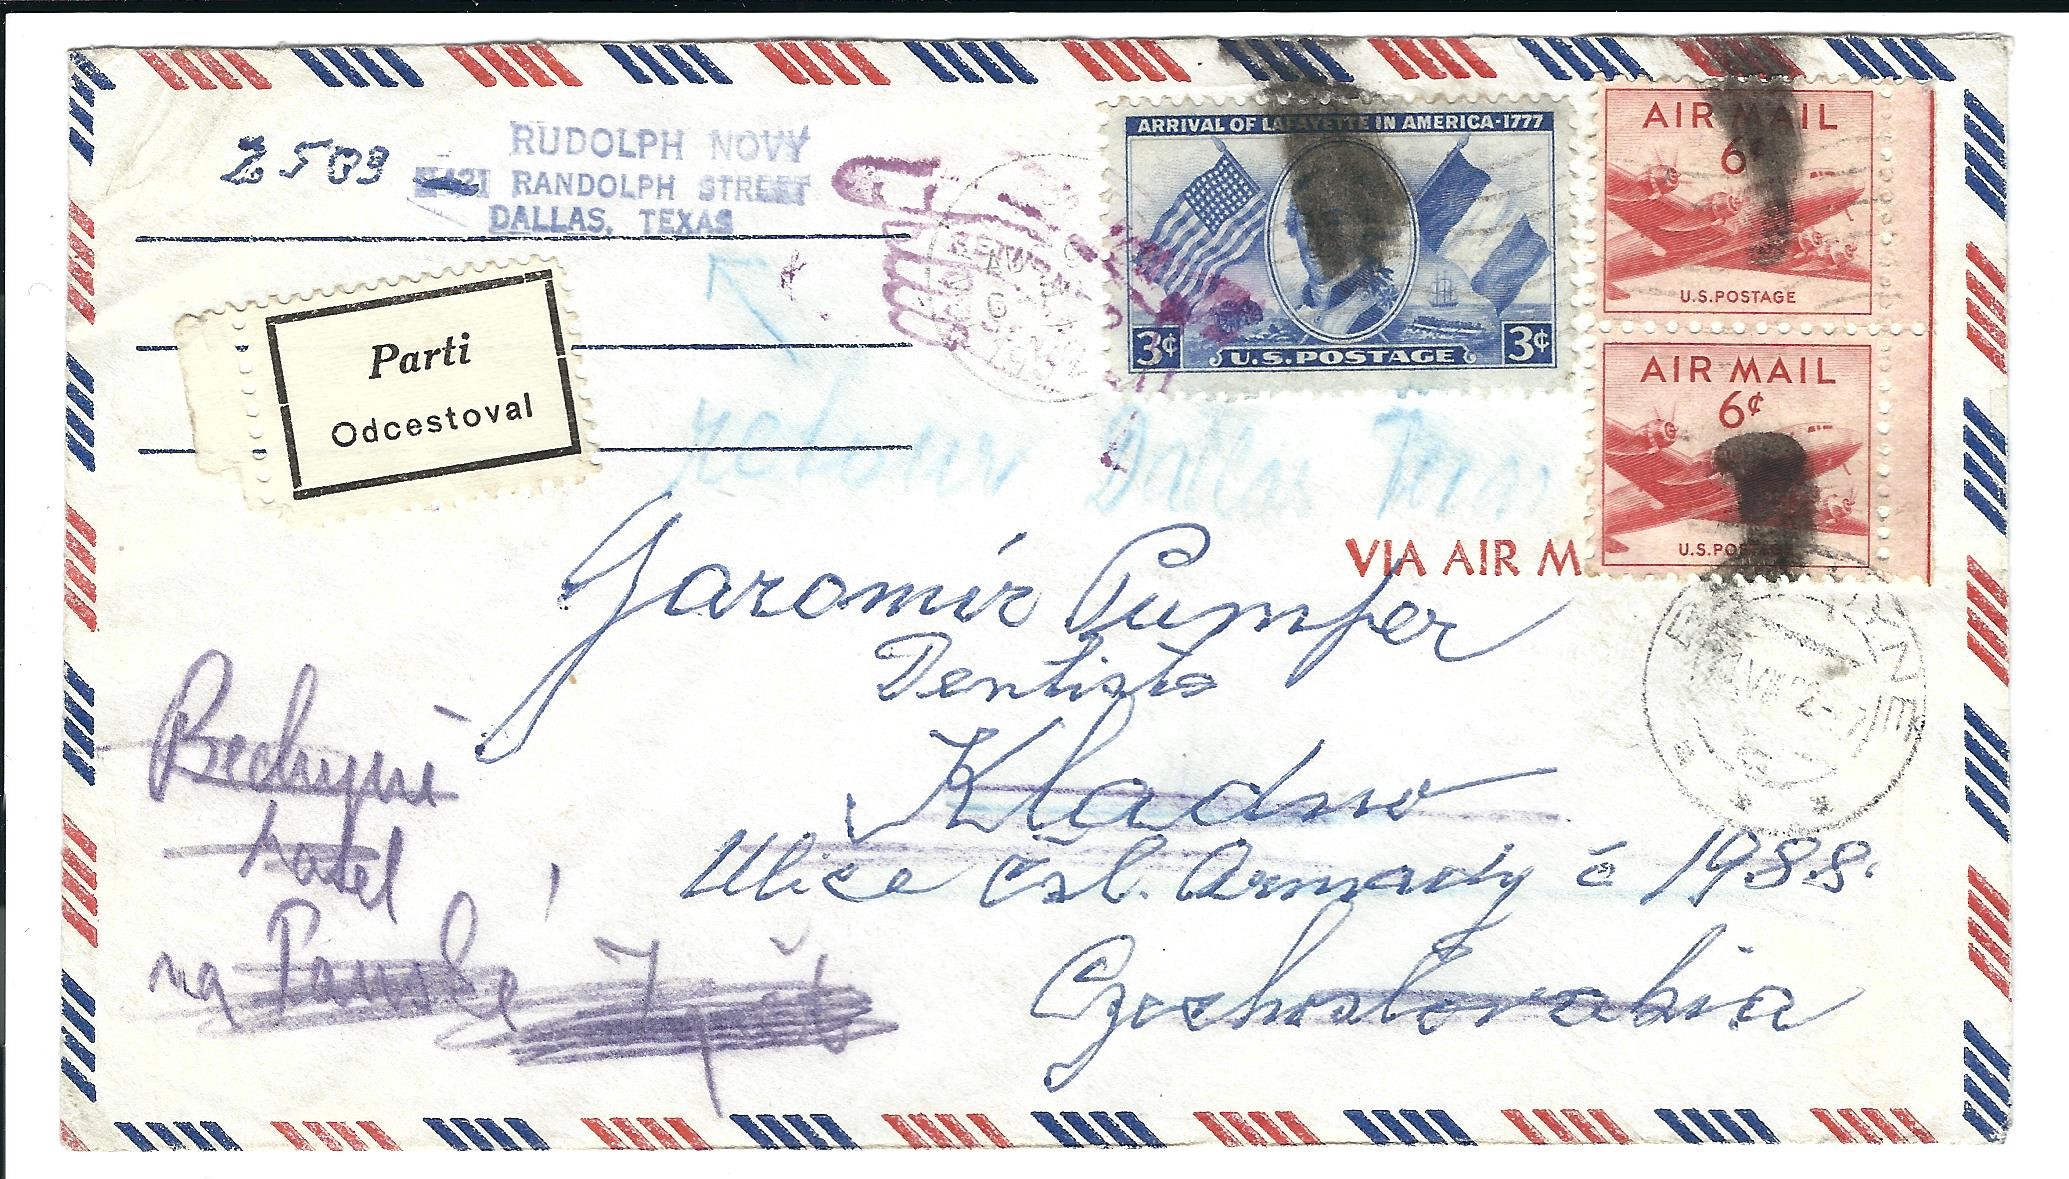 2503
RUDOLPH NOVY
RANDOLPH STREET
DALLAS, TEXAS
ARRIVAL OF LAFAYETTE IN AMERICA-1777
3¢ U.S. POSTAGE 3¢
AIR MAIL
6¢
U.S. POSTAGE
AIR MAIL
6¢
U.S. POSTAGE
Parti
Odcestoval
retour Dallas Texas
VIA AIR M
Jaromir Pumper
Dentista
Kladno
Ulice Čsl. Armady č 1988.
Czechoslovakia
Bechyně
hotel
na